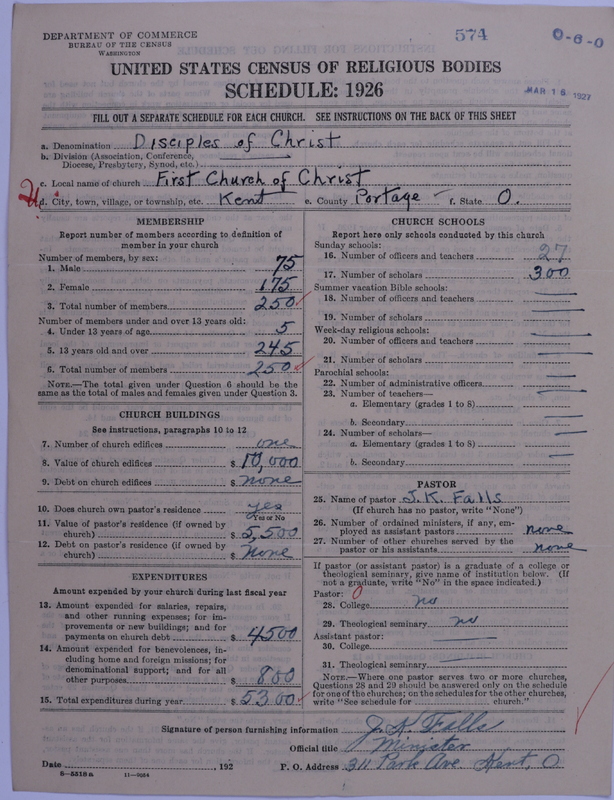 DEPARTMENT OF COMMERCE
BUREAU OF THE CENSUS
WASHINGTON
574
0-6-0
MAR 16 1927
UNITED STATES CENSUS OF RELIGIOUS BODIES
SCHEDULE: 1926
FILL OUT A SEPARATE SCHEDULE FOR EACH CHURCH. SEE INSTRUCTIONS ON THE BACK OF THIS SHEET
a. Denomination Disciples of Christ
b. Division (Association, Conference, Diocese, Presbytery, Synod, etc.)
c. Local name of church First Church of Christ
d. City, town, village, or township, etc. Kent e. County Portage f. State O.
MEMBERSHIP
Report number of members according to definition of
member in your church
Number of members, by sex:
1. Male 75
2. Female 175
3. Total number of members 250
Number of members under and over 13 years old:
4. Under 13 years of age 5
5. 13 years old and over 245
6. Total number of members 250
NOTE.—The total given under Question 6 should be the
same as the total of males and females given under Question 3.
CHURCH BUILDINGS
See instructions, paragraphs 10 to 12
7. Number of church edifices one
8. Value of church edifices $ 10,000
9. Debt on church edifices $ none
10. Does church own pastor's residence yes
Yes or No
11. Value of pastor's residence (if owned by
church) $ 5,500
12. Debt on pastor's residence (if owned by
church) $ none
EXPENDITURES
Amount expended by your church during last fiscal year
13. Amount expended for salaries, repairs,
and other running expenses; for im-
provements or new buildings; and for
payments on church debt $ 4500
14. Amount expended for benevolences, in-
cluding home and foreign missions; for
denominational support; and for all
other purposes $ 800
15. Total expenditures during year $ 5300
CHURCH SCHOOLS
Report here only schools conducted by this church
Sunday schools:
16. Number of officers and teachers 27
17. Number of scholars 300
Summer vacation Bible schools:
18. Number of officers and teachers
19. Number of scholars
Week-day religious schools:
20. Number of officers and teachers
21. Number of scholars
Parochial schools:
22. Number of administrative officers
23. Number of teachers—
a. Elementary (grades 1 to 8)
b. Secondary
24. Number of scholars—
a. Elementary (grades 1 to 8)
b. Secondary
PASTOR
25. Name of pastor J. K. Falls
(If church has no pastor, write "None")
26. Number of ordained ministers, if any, em-
ployed as assistant pastors none
27. Number of other churches served by the
pastor or his assistants none
If pastor (or assistant pastor) is a graduate of a college or
theological seminary, give name of institution below. (If
not a graduate, write "No" in the space indicated.)
Pastor: 0
28. College no
29. Theological seminary no
Assistant pastor:
30. College
31. Theological seminary
NOTE.—Where one pastor serves two or more churches,
Questions 28 and 29 should be answered only on the schedule
for one of the churches; on the schedules for the other churches,
write "See schedule for church."
Signature of person furnishing information J. K. Falls
Official title Minister
Date , 192 P. O. Address 311 Park Ave Kent, O
8-5518a 11-9054